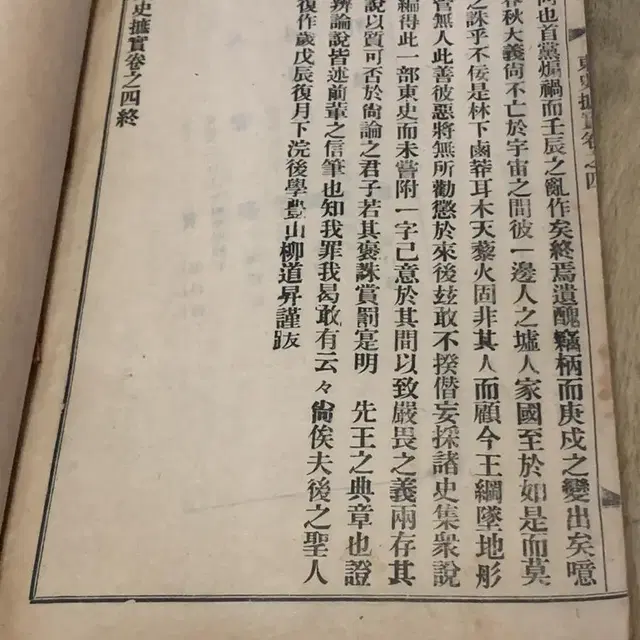 東史摭實卷之四
也首黨煽禍而壬辰之亂作矣終焉遺醜竊柄而庚戌之變出矣噫
春秋大義尙不亡於宇宙之間彼一邊人之墟人家國至於如是而莫
之誅乎不佞是林下鹵莽耳木天藜火固非其人而顧今王綱墜地彤
管無人此善彼惡將無所勸懲於來後玆敢不揆僭妄採諸史集衆說
編得此一部東史而未嘗附一字己意於其間以致嚴畏之義兩存其
說以質可否於尙論之君子若其褒誅賞罰寔明 先王之典章也證
辨論說皆述前輩之信筆也知我罪我曷敢有云々尙俟夫後之聖人
復作歲戊辰復月下浣後學豊山柳道昇謹跋
史摭實卷之四終